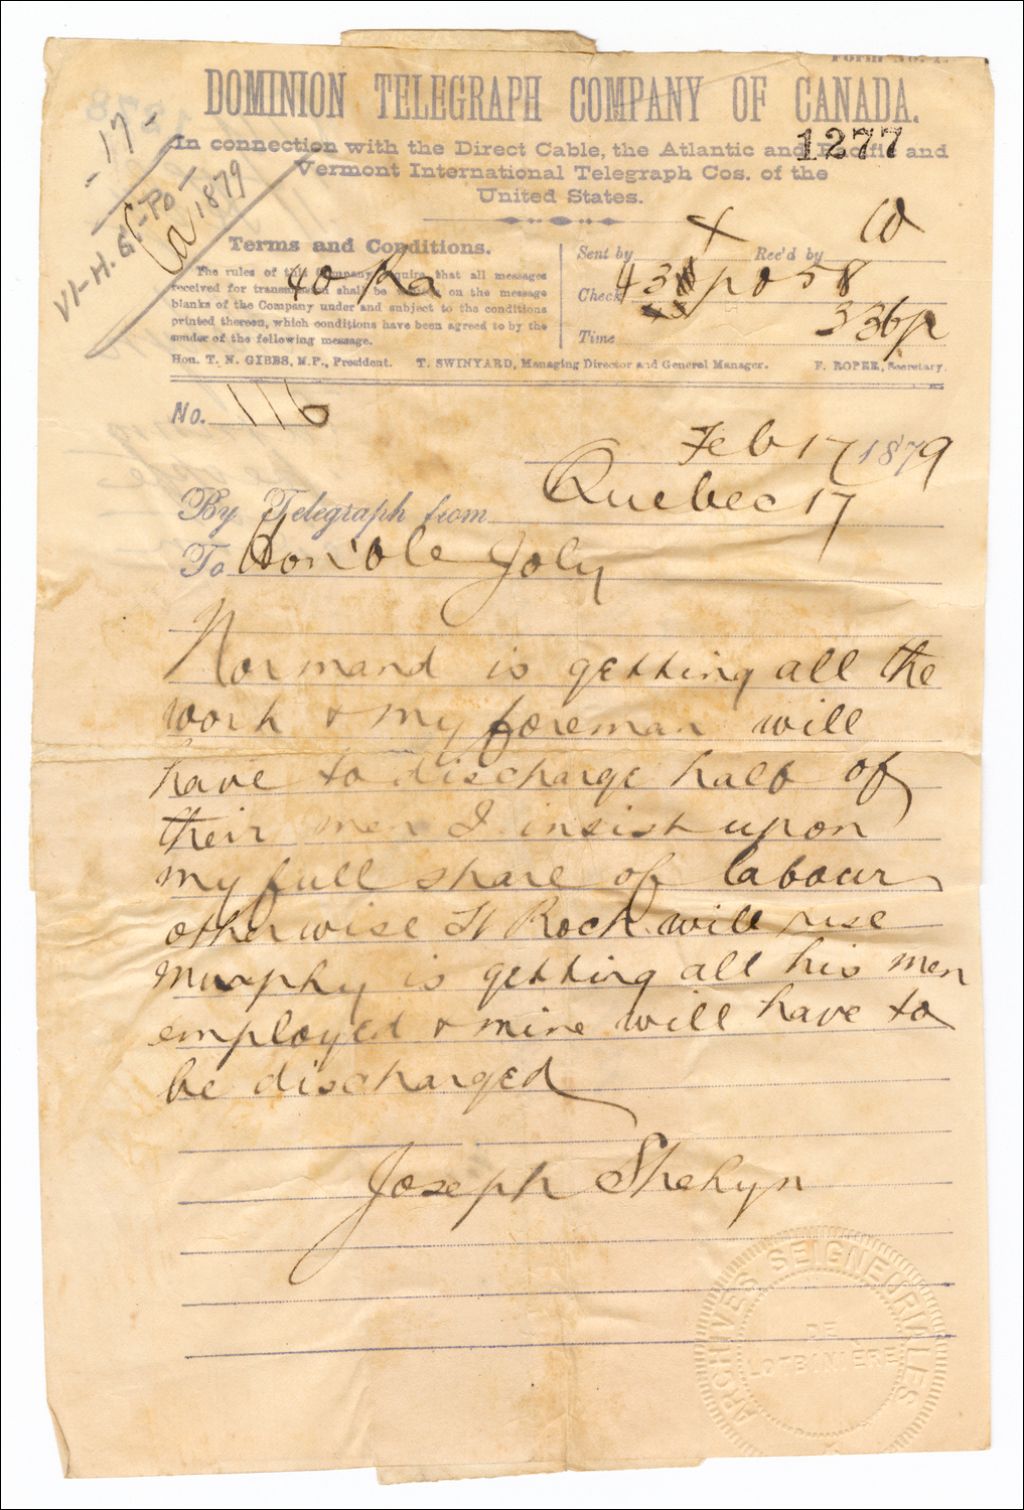 DOMINION TELEGRAPH COMPANY OF CANADA.
1277
In connection with the Direct Cable, the Atlantic and Pacific and
Vermont International Telegraph Cos. of the
United States.
- 17 -
1879
Terms and Conditions.
The rules of this Company require that all messages
received for transmission shall be on the message
blanks of the Company under and subject to the conditions
printed thereon, which conditions have been agreed to by the
sender of the following message.
40 Ra
Sent by X Rec'd by W
Check 43 p o 58
Time 336p
Hon. T. N. GIBBS, M.P., President. T. SWINYARD, Managing Director and General Manager. F. ROPER, Secretary.
No. 116
Feb 17 1879
By Telegraph from Quebec 17
To Hon'ole Joly
Normand is getting all the
work & my foreman will
have to discharge half of
their men I insist upon
my full share of labour
otherwise St Roch will rise
Murphy is getting all his men
employed & mine will have to
be discharged
Joseph Shehyn
ARCHIVES SEIGNEURIALES
DE
LOTBINIERE